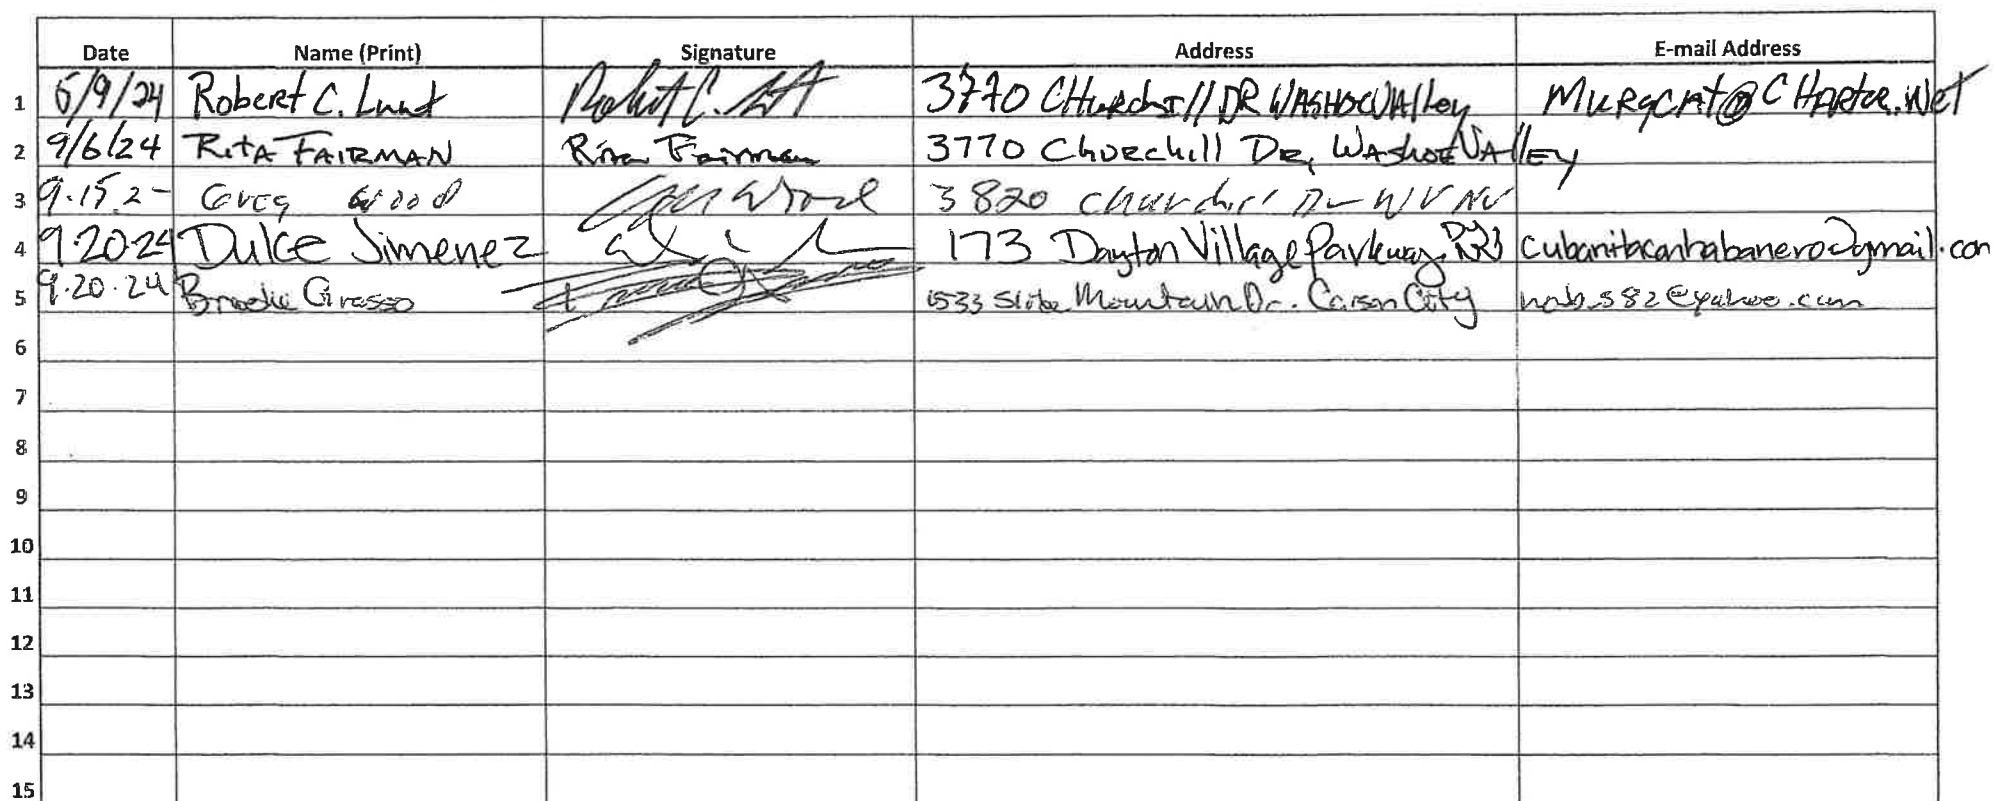 Date Name (Print) Signature Address E-mail Address
1 5/9/24 Robert C. Lund Robert C. 3770 CHurchIll DR WASHOE VAlley MURQCAT@CHARTER.NET
2 9/6/24 RITA FAIRMAN Rita Fairman 3770 Churchill DR, WASHOE VAllEY
3 9.15.2- Greg Wood Greg Wood 3820 Churchill Dr WV NV
4 9.20.24 Dulce Jimenez 173 Dayton Village Parkway cubanitaconhabanero@gmail.com
5 9.20.24 Grasso 1533 Slide Mountain Dr. Carson City
6
7
8
9
10
11
12
13
14
15